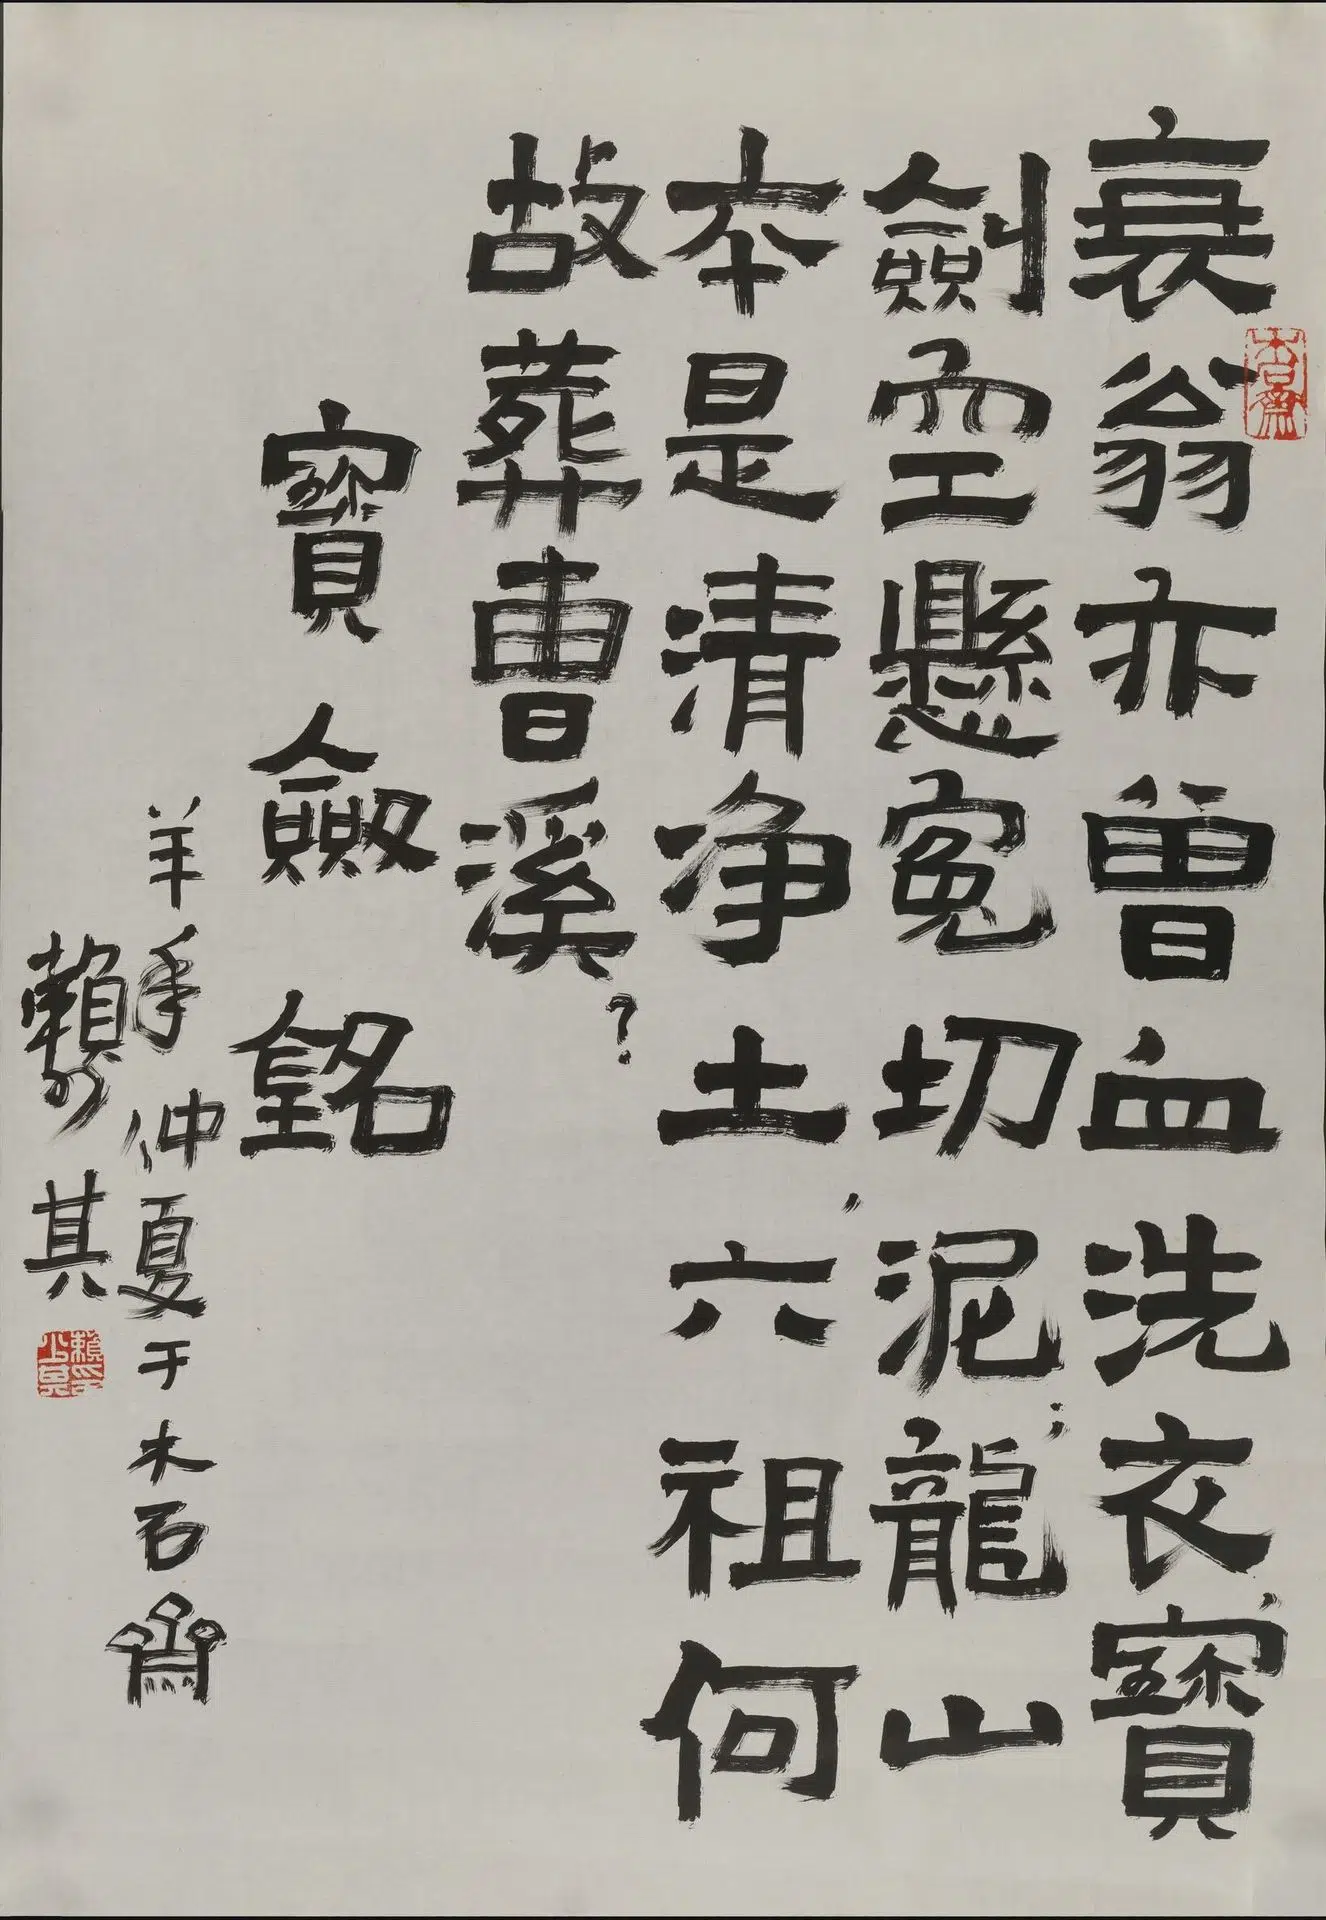 衰翁亦曾血洗衣，寶
劍空懸寃切泥；龍山
本是清净土，六祖何
故葬曹溪？
寶劍銘
羊年仲夏于木石齋
賴少其
木石齋
賴印少其